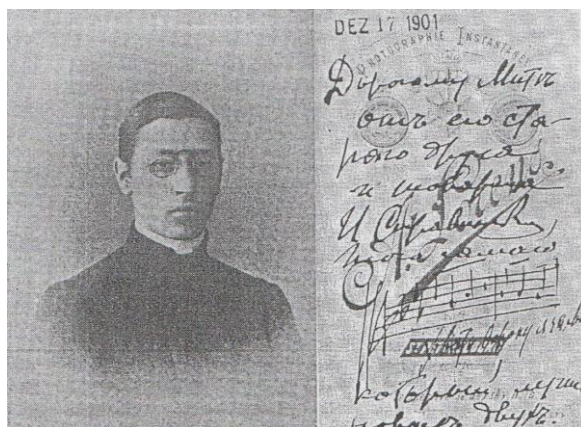 DEZ 17 1901
PHOTOGRAPHIE INSTANTANÉE
Дорогому Митѣ
отъ его ста-
раго друга
и товарища
И Стравинск
того самаго
который, лучше
новыхъ двухъ.